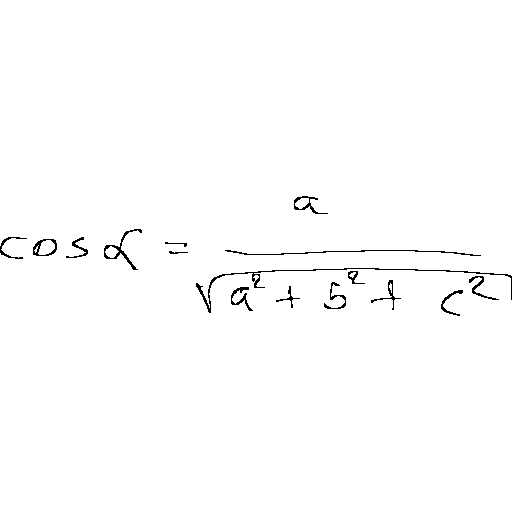 cos α = a / √(a² + 5² + c²)